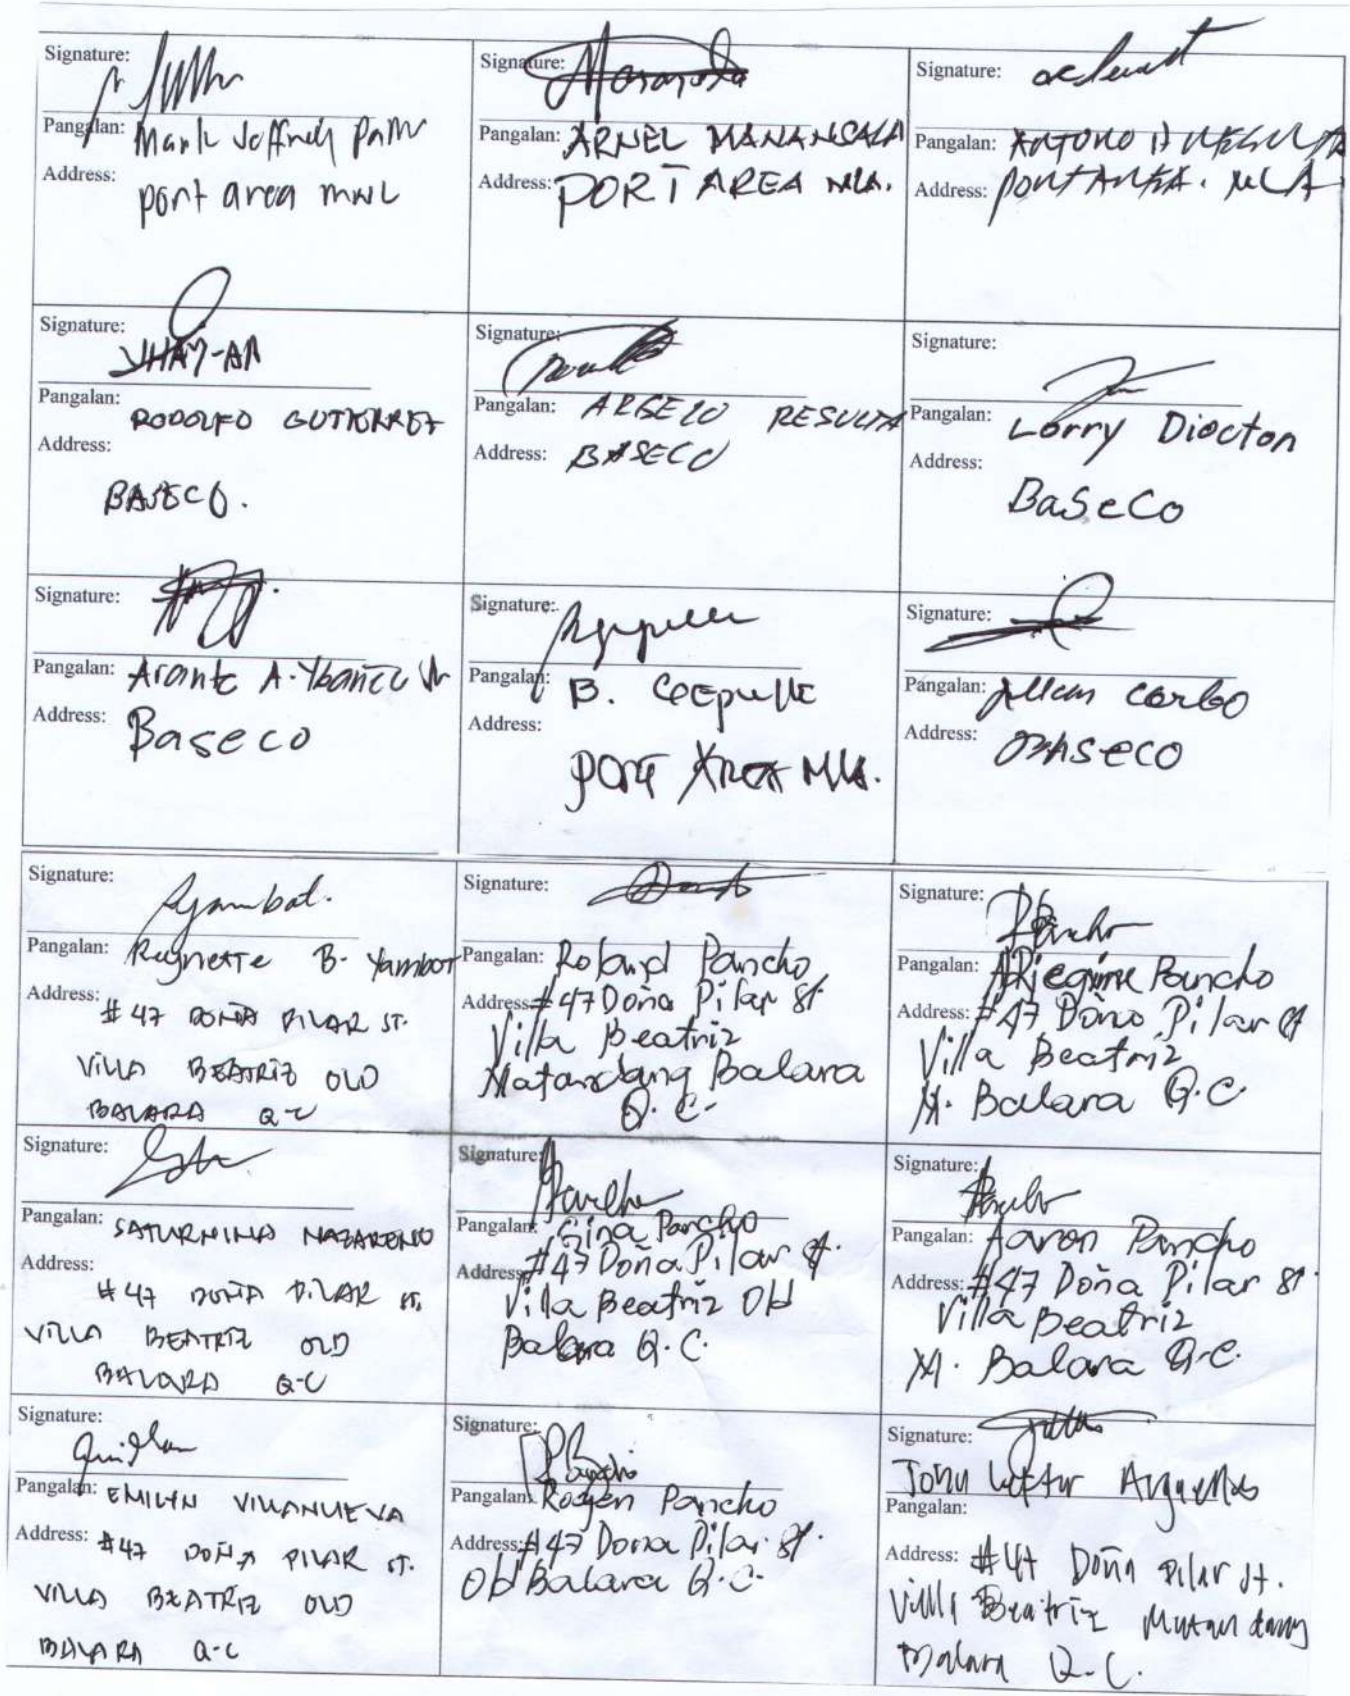 Signature:
Pangalan: Mark Joffrey
Address:
port area
Signature:
Pangalan: ARNEL MANANSALA
Address: PORT AREA MLA.
Signature:
Pangalan:
Address: MLA
Signature:
JHAY-AR
Pangalan:
RODOLFO GUTIERREZ
Address:
BASECO.
Signature:
Pangalan: RESULTA
Address: BASECO
Signature:
Pangalan: Lorry Diocton
Address:
BaSeCo
Signature:
Pangalan: A. Ybañez Jr
Address: Baseco
Signature:
Pangalan: B.
Address:
PORT AREA MLA.
Signature:
Pangalan: Allan Carbo
Address: BASECO
Signature:
Pangalan: Reynette B. Yambot
Address: # 47 DOÑA PILAR ST.
VILLA BEATRIZ OLD
BALARA Q-C
Signature:
Pangalan: Roland Pancho
Address: #47 Doña Pilar St
Villa Beatriz
Matandang Balara
Q.C.
Signature:
Pangalan: Pancho
Address: #47 Doña Pilar St
Villa Beatriz
M. Balara Q.C.
Signature:
Pangalan: SATURNINO NAZARENO
Address:
# 47 DOÑA PILAR ST.
VILLA BEATRIZ OLD
BALARA Q-C
Signature:
Pangalan: Gina Pancho
Address: #47 Doña Pilar St.
Villa Beatriz Old
Balara Q.C.
Signature:
Pangalan: Aaron Pancho
Address: #47 Doña Pilar St.
Villa Beatriz
M. Balara Q.C.
Signature:
Pangalan: EMILYN VILLANUEVA
Address: #47 DOÑA PILAR ST.
VILLA BEATRIZ OLD
BALARA Q-C
Signature:
Pangalan: Rogen Pancho
Address: #47 Dona Pilar St.
Old Balara Q.C.
Signature:
John
Pangalan:
Address: #47 Doña Pilar St.
Villa Beatriz Matandang
Balara Q.C.